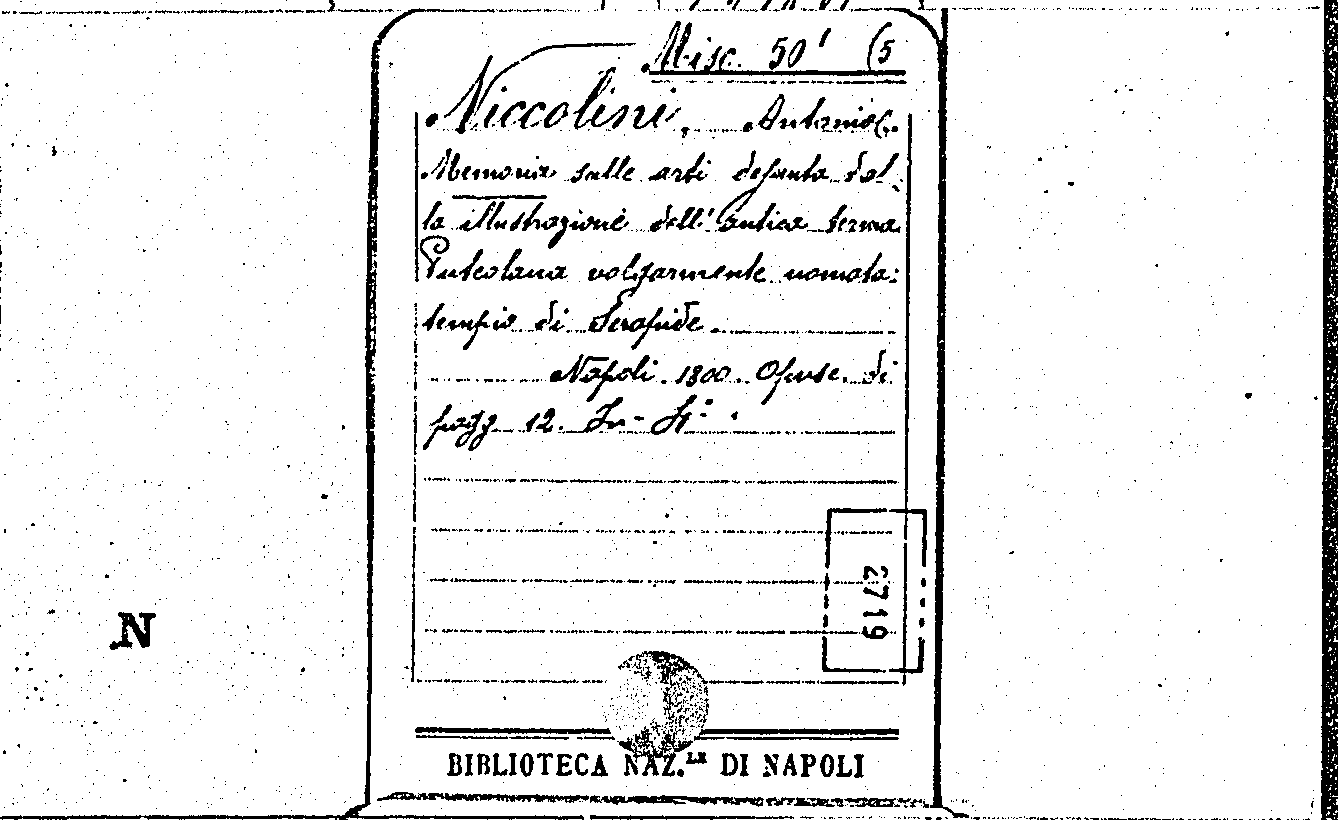 Misc. 50' (5
Niccolini, Antonio.
Memoria sulle arti desunta dal-
la illustrazione dell'antica terma
Puteolana volgarmente nomata:
tempio di Serapide.
Napoli. 1800. Opusc. di
pagg. 12. In-4°.
2719
N
BIBLIOTECA NAZ.LE DI NAPOLI